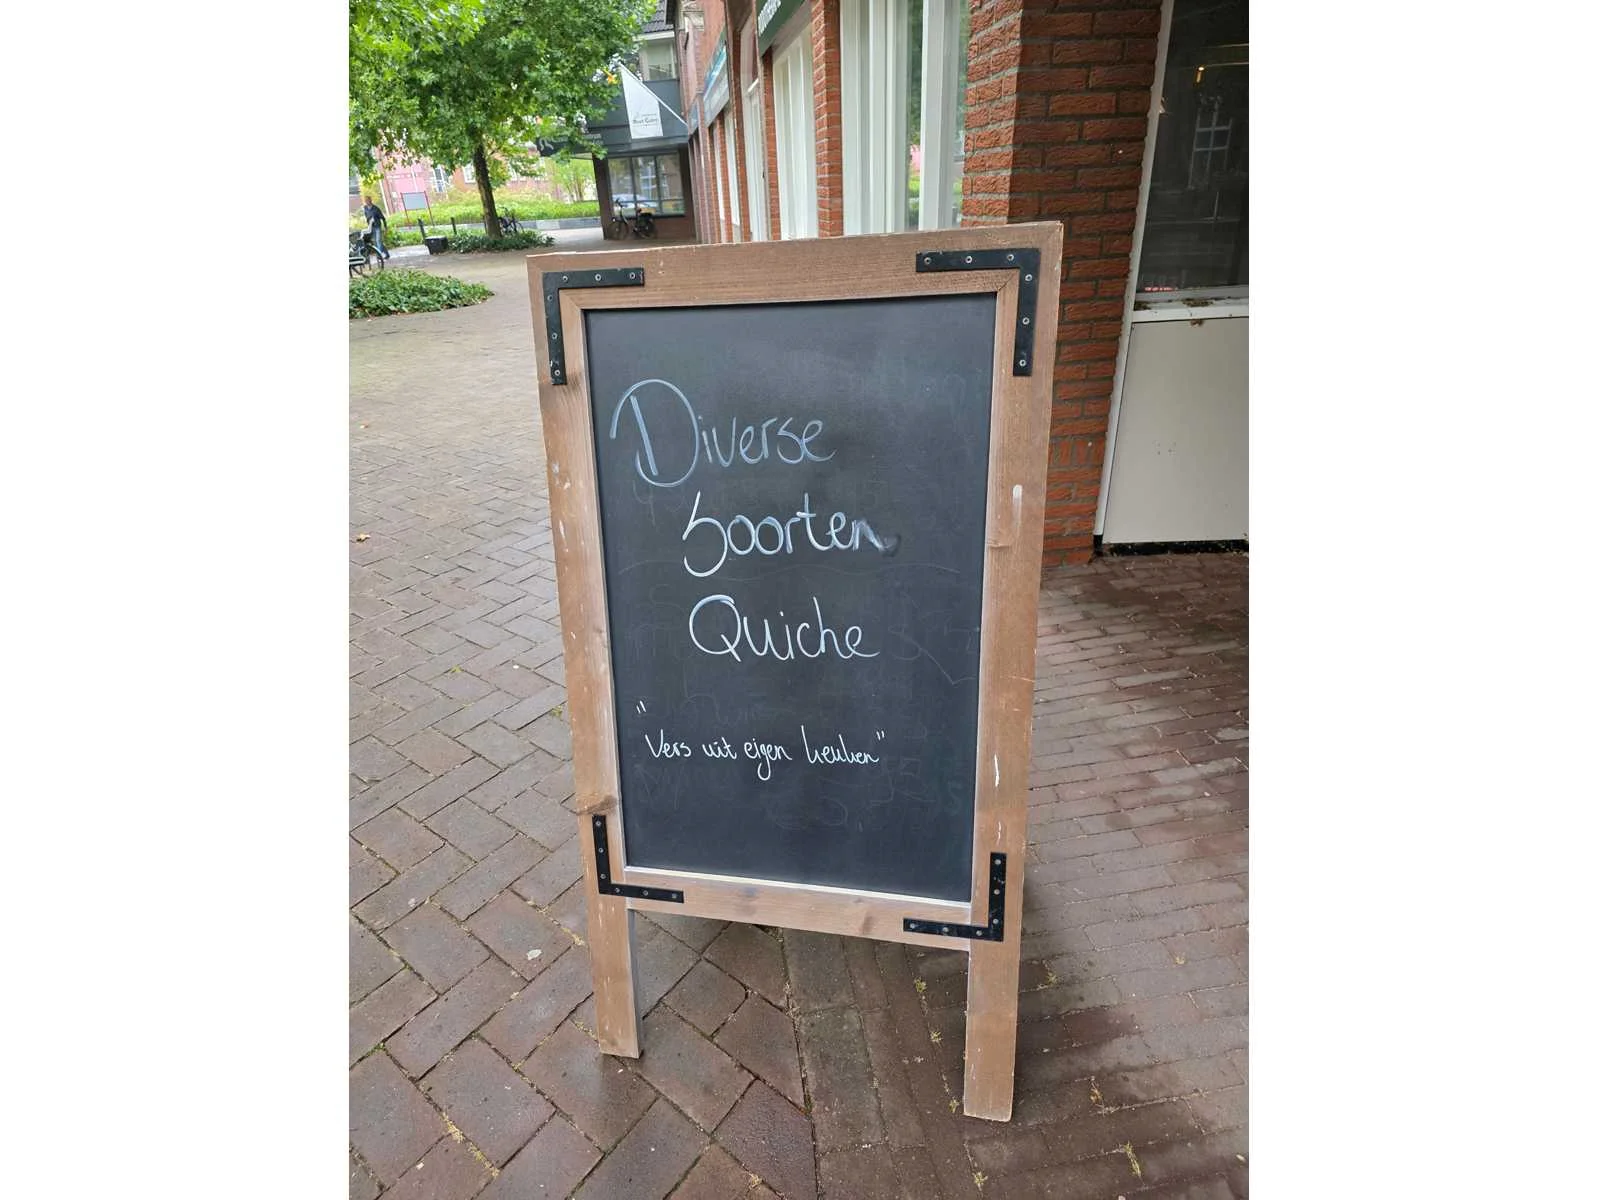 Diverse
Soorten
Quiche
"Vers uit eigen keuken"